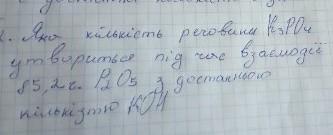 2. Яка кількість речовини K₃PO₄
утвориться під час взаємодії
85,2 г. P₂O₅ з достатньою
кількістю KOH